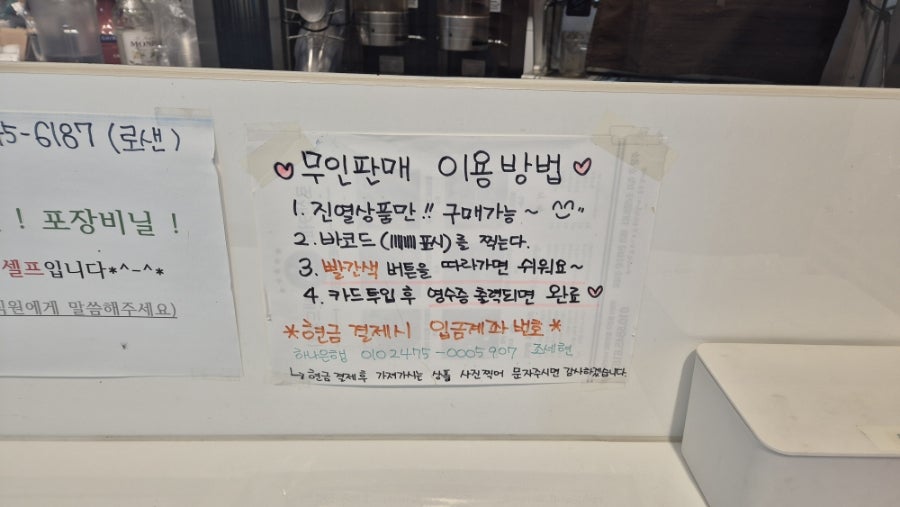 MONIN
5-6187 (로샌)
! 포장비닐 !
셀프입니다*^-^*
직원에게 말씀해주세요)
♡무인판매 이용방법♡
1. 진열상품만!! 구매가능~ ^^"
2. 바코드(|||||||| 표시)를 찍는다.
3. 빨간색 버튼을 따라가면 쉬워요~
4. 카드투입 후 영수증 출력되면 완료♡
*현금 결제시 입금계좌 번호*
하나은행 010 2475-0005907 조세현
↳ 현금 결제후 가져가시는 상품 사진찍어 문자주시면 감사하겠습니다.